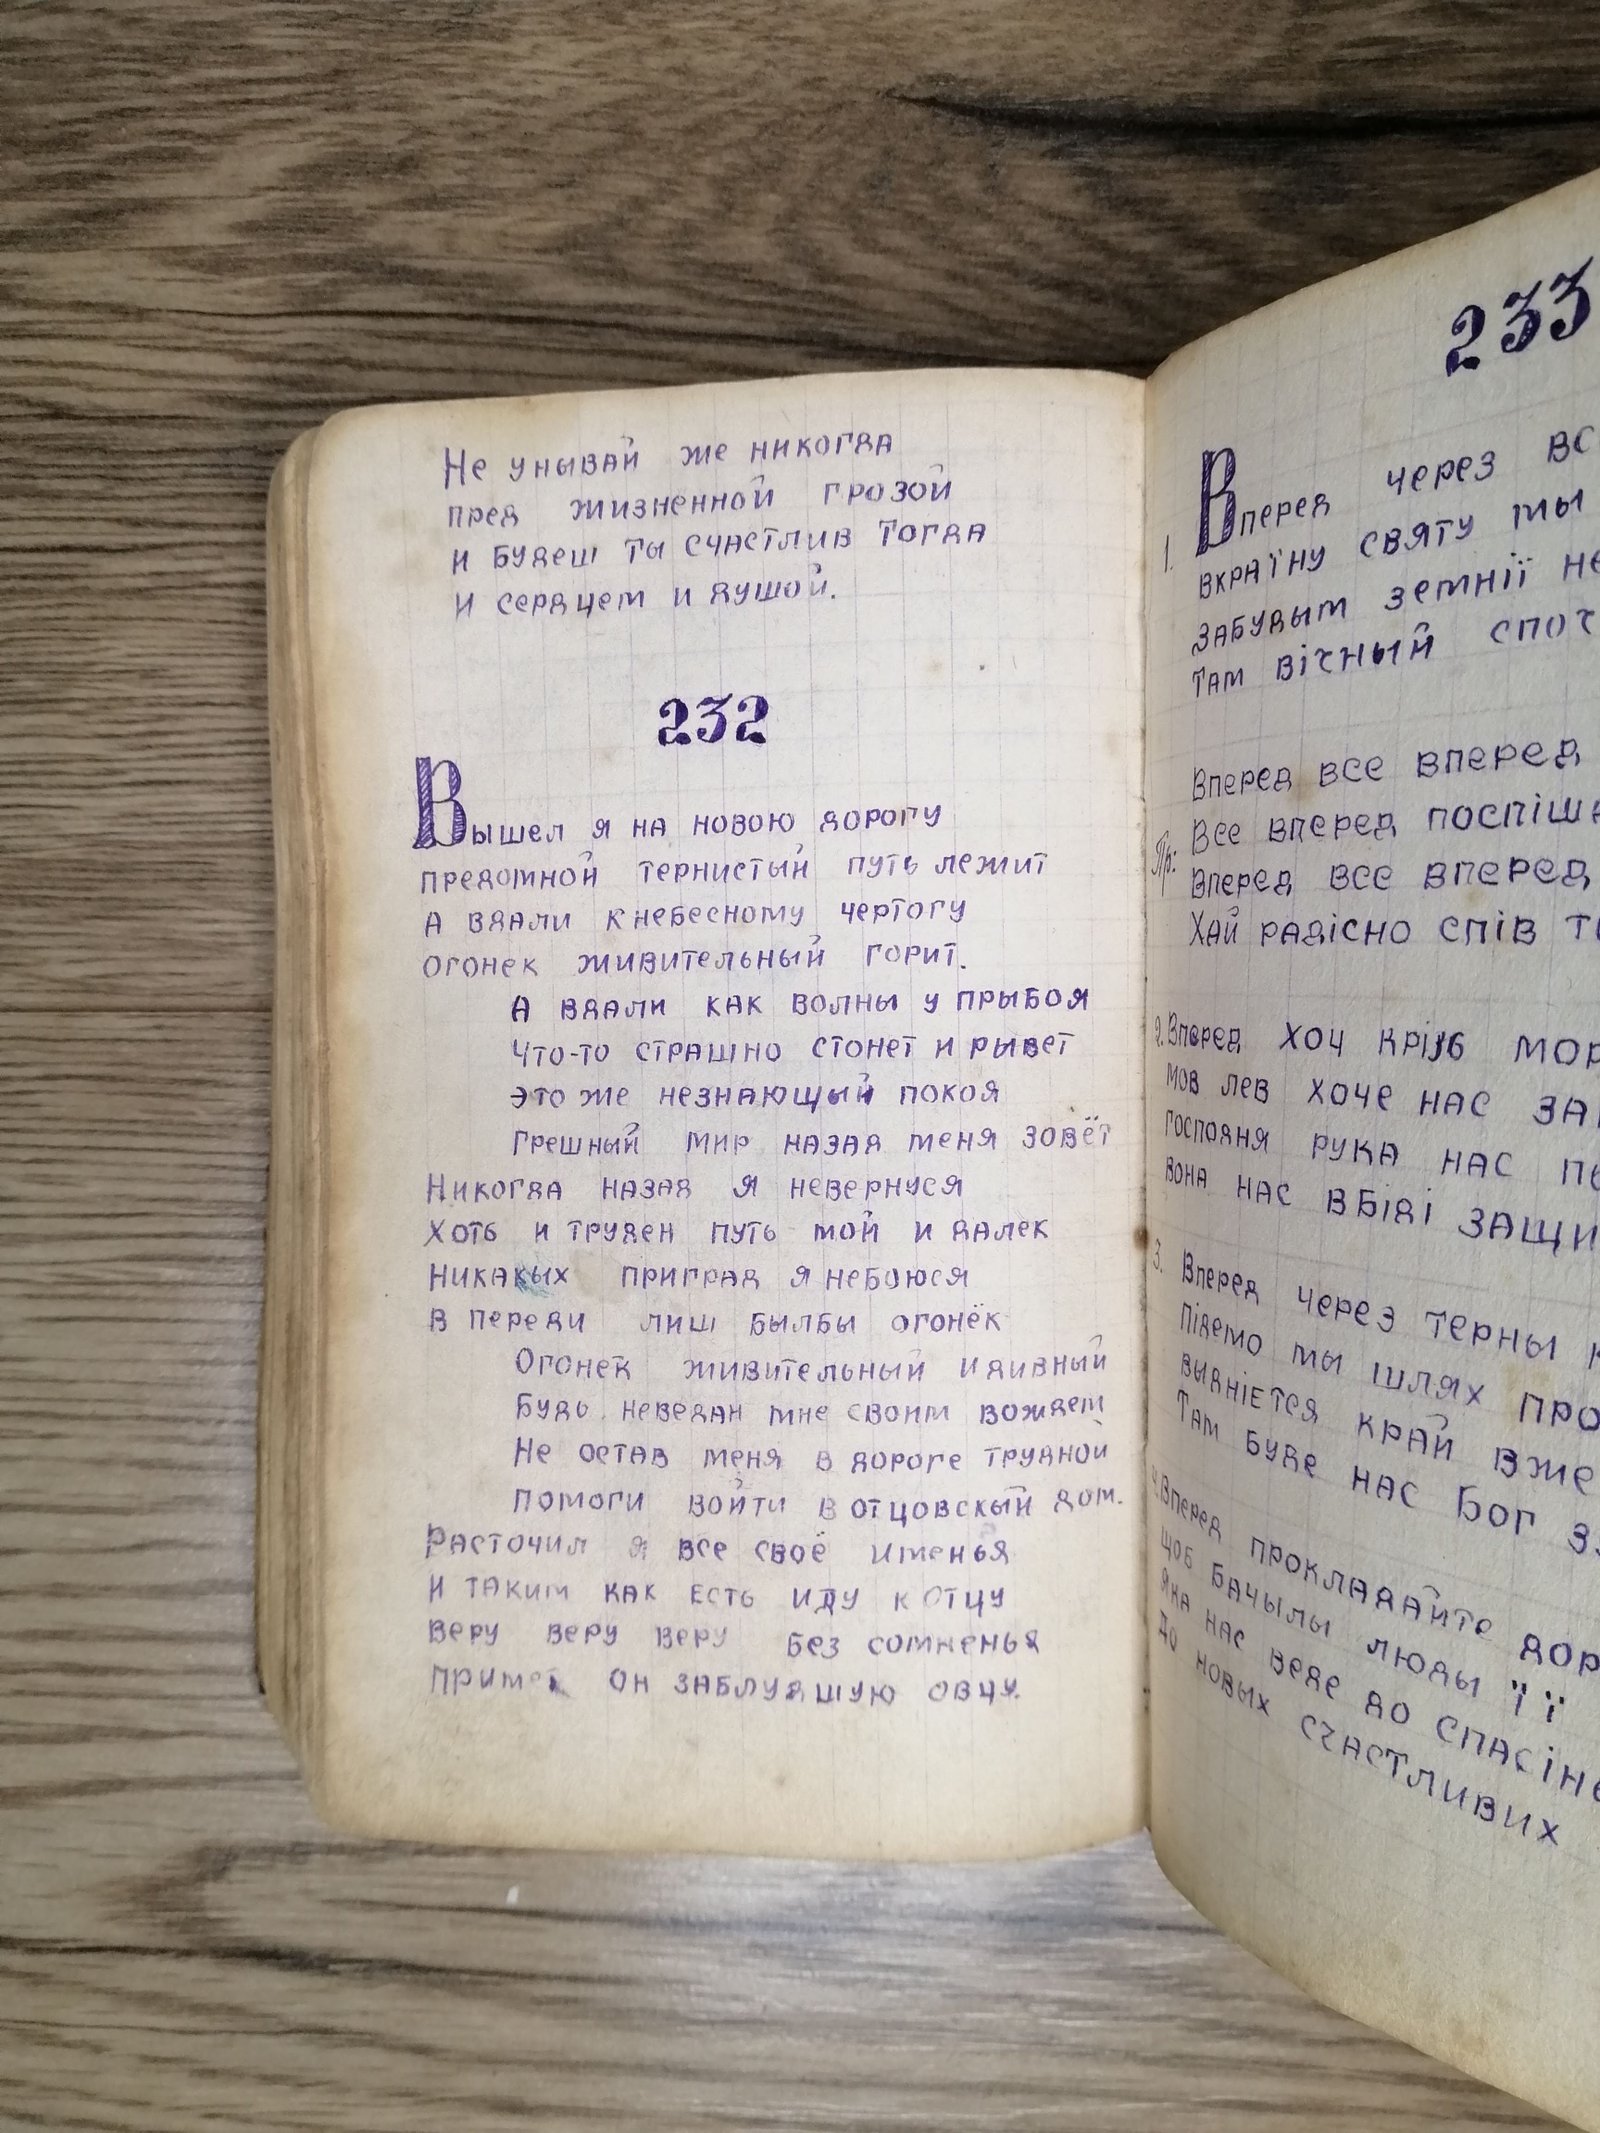 Не унывай же никогда
пред жизненной грозой
и будеш ты счастлив тогда
и сердцем и душой.
232
Вышел я на новою дорогу
предомной тернистый путь лежит
А вдали к небесному чертогу
огонек живительный горит.
А вдали как волны у прыбоя
Что-то страшно стонет и рывет
это же незнающый покоя
грешный мир назад меня зовёт
Никогда назад я невернуся
Хоть и труден путь мой и далек
никакых приград я небоюся
в переди лиш былбы огонёк
Огонек живительный и дивный
Будь неведан мне своим вождем
Не остав меня в дороге трудной
помоги войти в отцовскый дом.
Расточил я все своё именья
и таким как есть иду к Отцу
веру веру веру без сомненья
примет он заблудшую овцу.
233
1. Вперед через вс
вкраїну святу мы
забудым земнії не
там вічный споч
Вперед все вперед
Все вперед поспіша
Пр: Вперед все вперед
Хай радісно спів
2. Вперед хоч крізь мор
мов лев хоче нас за
господня рука нас
вона нас в біді защи
3. Вперед через терны к
підемо мы шлях про
выдніется край вже
Там буде нас Бог з
4. Вперед прокладайте дор
щоб бачылы люды її
яка нас веде до спасіне
до новых счастливих